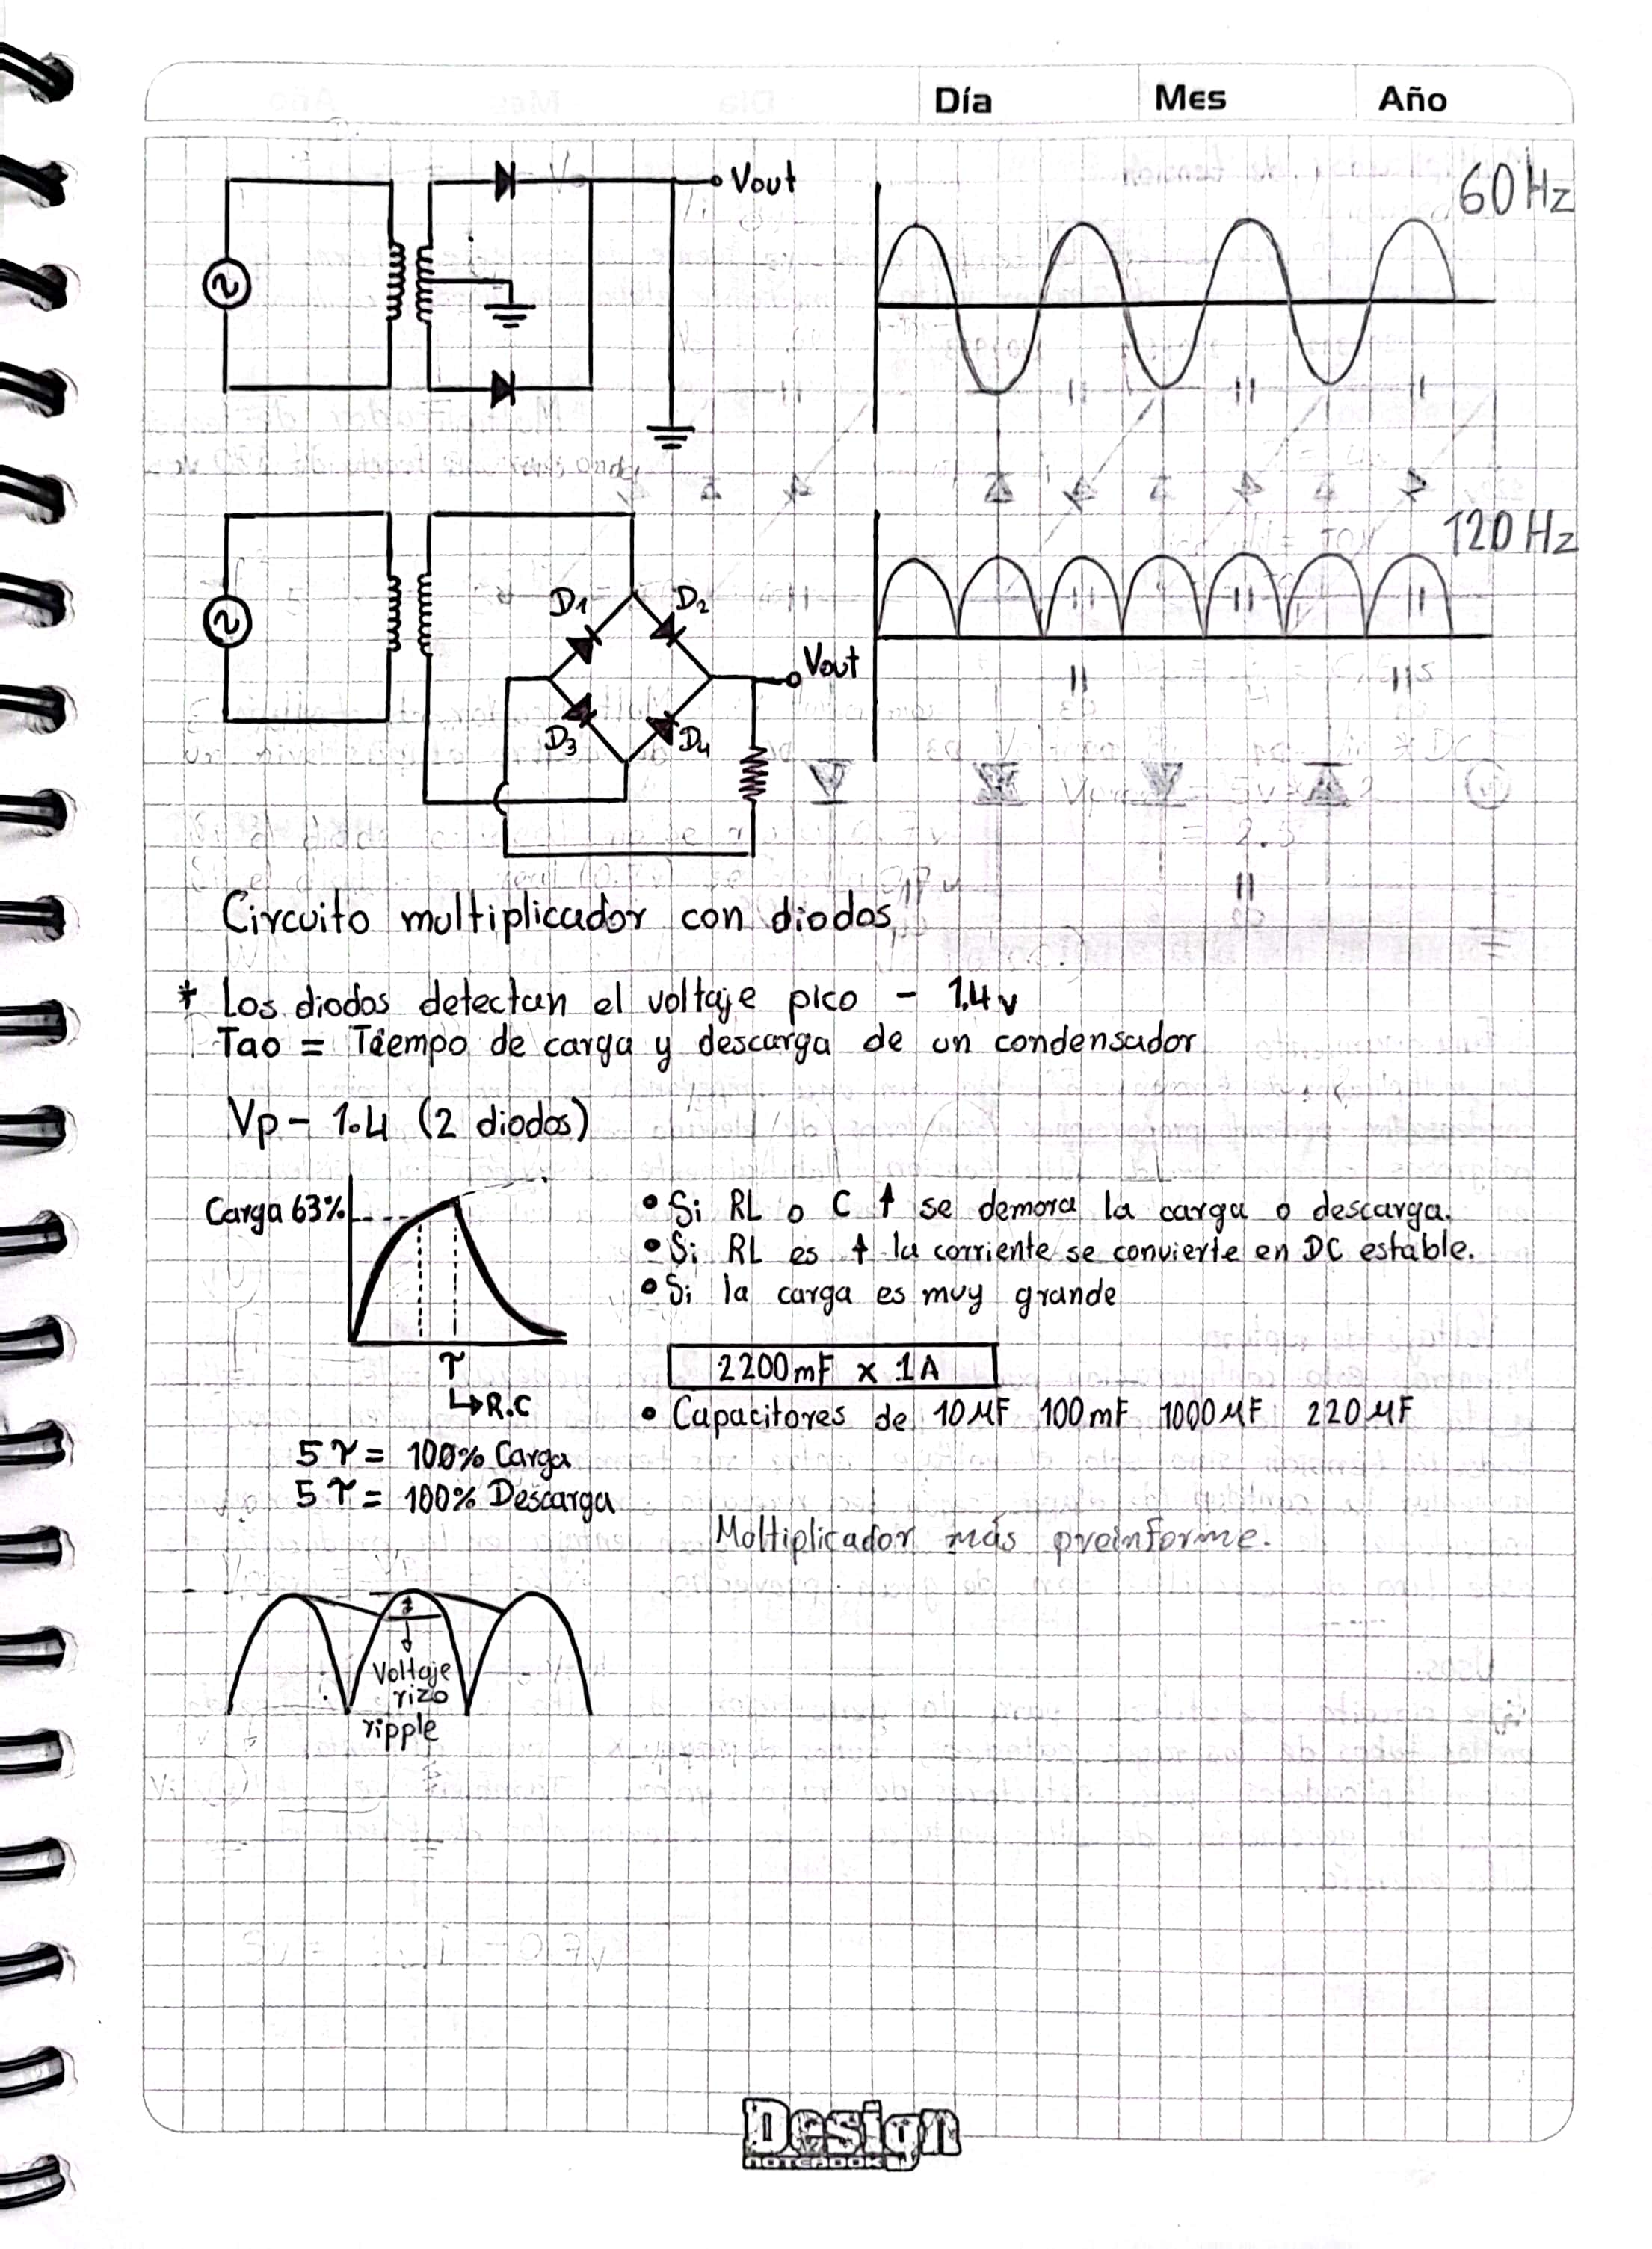 Día Mes Año
Vout
60 Hz
120 Hz
D1 D2
Vout
D3 D4
Circuito multiplicador con diodos
* Los diodos detectan el voltaje pico - 1.4v
Tao = Tiempo de carga y descarga de un condensador
Vp - 1.4 (2 diodos)
Carga 63%
• Si RL o C ↑ se demora la carga o descarga.
• Si RL es ↑ la corriente se convierte en DC estable.
• Si la carga es muy grande
τ
↳R.C
2200mF x 1A
• Capacitores de 10μF 100mF 1000μF 220μF
5τ = 100% Carga
5τ = 100% Descarga
Moltiplicador más preinforme.
Voltaje
rizo
ripple
Design
NOTEBOOK